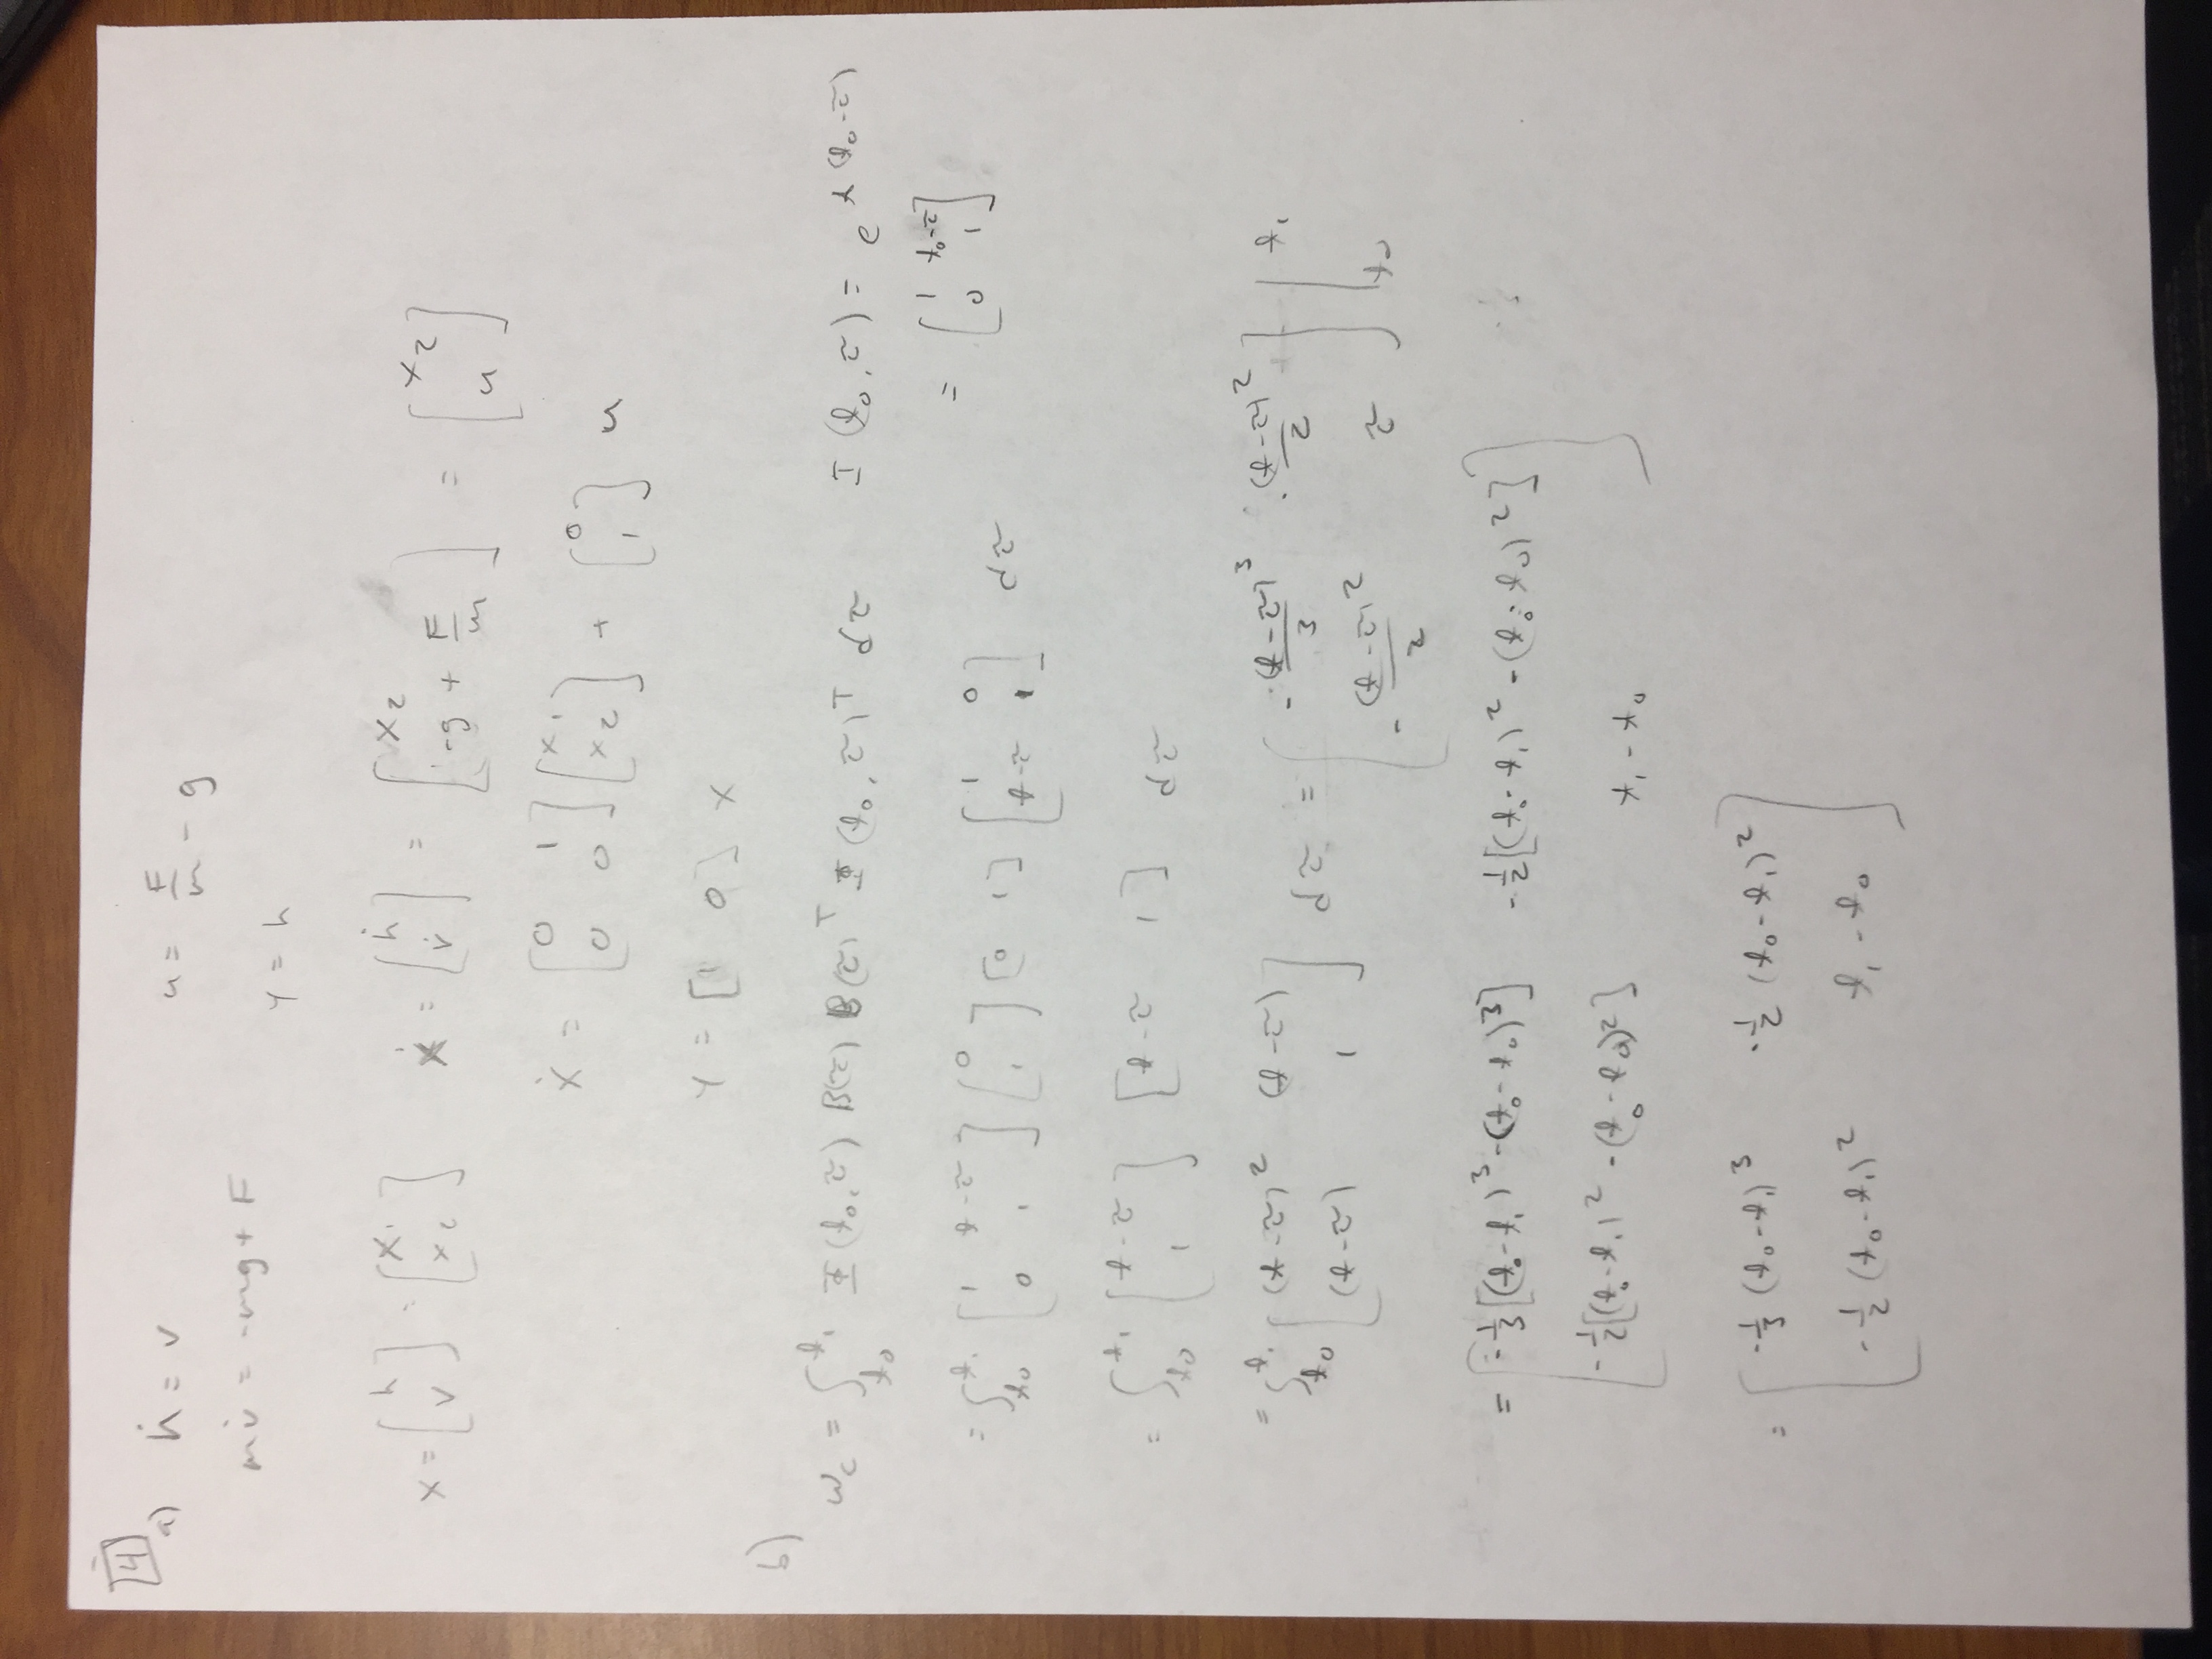 4
a) ḣ = v    u = F/m - g
mv̇ = -mg + F
y = h
x = [h; v] = [x₁; x₂]    ẋ = [ḣ; v̇] = [x₂; -g + F/m] = [x₂; u]
ẋ = [0 1; 0 0] [x₁; x₂] + [0; 1] u
y = [1 0] x
b)
W_c = ∫_{t₀}^{t₁} Φ(t₀, τ) B(τ) B(τ)ᵀ Φ(t₀, τ)ᵀ dτ    Φ(t₀, τ) = e^{A(t₀-τ)}
= [1 t₀-τ; 0 1]
= ∫_{t₀}^{t₁} [1 t-τ; 0 1] [0; 1] [0 1] [1 0; t-τ 1] dτ
= ∫_{t₀}^{t₁} [t-τ; 1] [t-τ 1] dτ
= ∫_{t₀}^{t₁} [(t-τ)² (t-τ); (t-τ) 1] dτ = [-(t-τ)³/3 -(t-τ)²/2; -(t-τ)²/2 τ] |_{t₀}^{t₁}
= [-1/3[(t₀-t₁)³-(t₀-t₀)³] -1/2[(t₀-t₁)²-(t₀-t₀)²]; -1/2[(t₀-t₁)²-(t₀-t₀)²] t₁-t₀]
= [-1/3(t₀-t₁)³ -1/2(t₀-t₁)²; -1/2(t₀-t₁)² t₁-t₀]